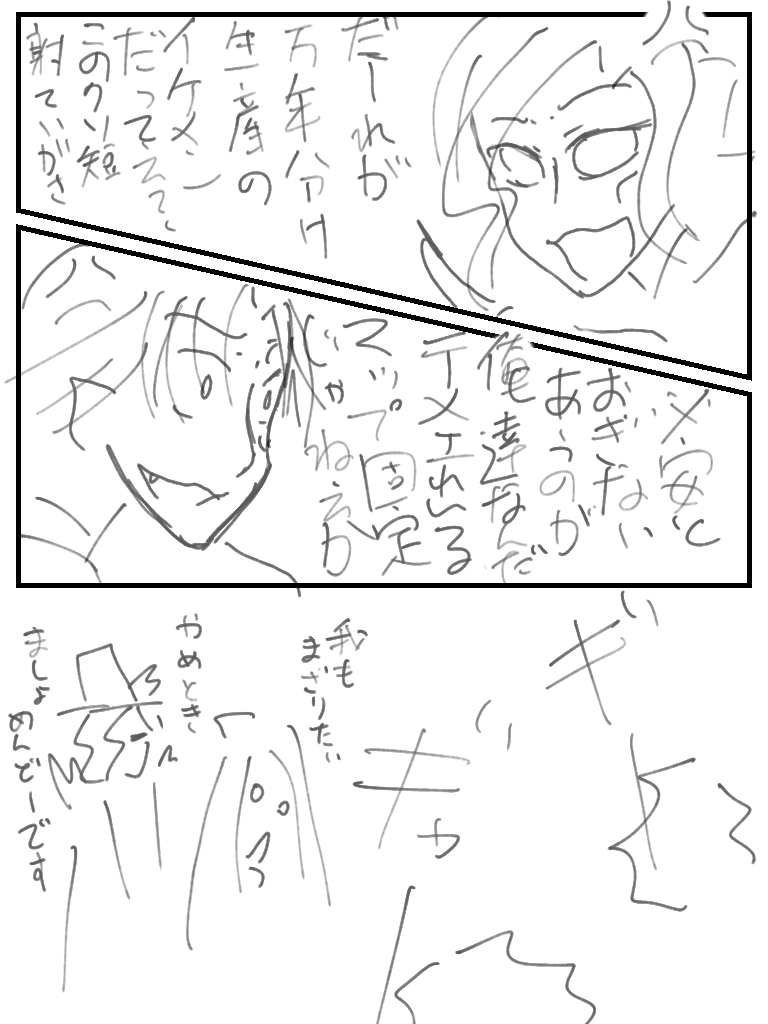 だーれが
万年分け
生産の
イケメン
だってえ
このクソ短
射ていがさ
メ安と
おぎない
あうのが
俺達なんだ
テメエれいる
マップ固定
じゃねえか
ギ
ギャ
我も
まざりたい
やめとき
ましょ
めんどーです